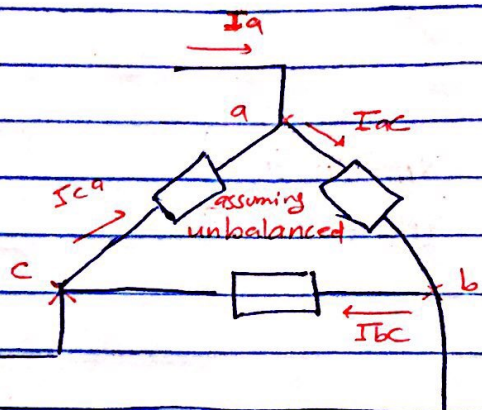 Ia
a
Iac
Ica
assuming
unbalanced
c
b
Ibc